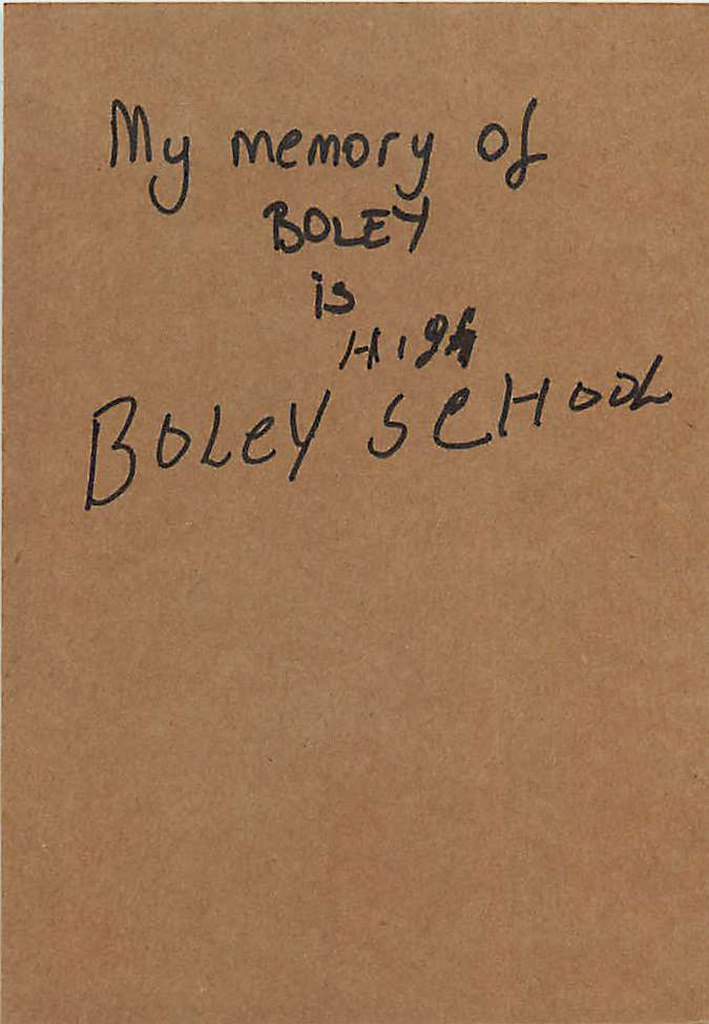 My memory of
BOLEY
is
HIgh
BOLeY SCHOOL